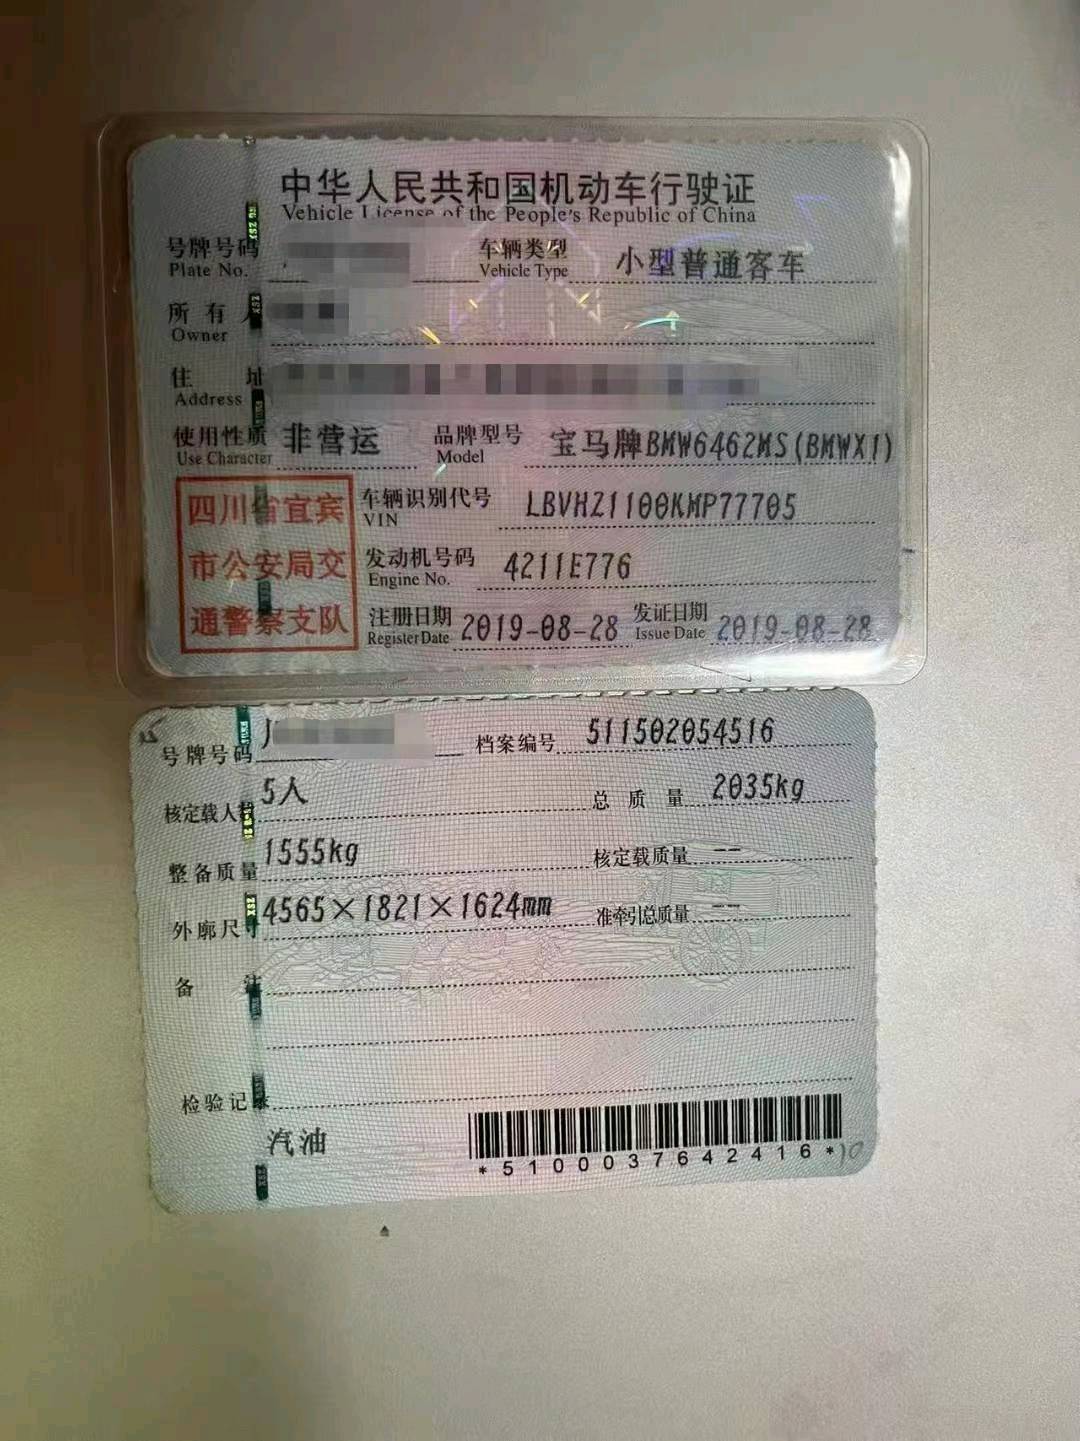 中华人民共和国机动车行驶证
Vehicle License of the People's Republic of China
号牌号码 车辆类型 小型普通客车
Plate No. Vehicle Type
所有人
Owner
住址
Address
使用性质 非营运 品牌型号 宝马牌BMW6462MS(BMWX1)
Use Character Model
四川省宜宾
市公安局交
通警察支队
车辆识别代号 LBVHZ1100KMP77705
VIN
发动机号码 4211E776
Engine No.
注册日期 2019-08-28 发证日期 2019-08-28
Register Date Issue Date
号牌号码 档案编号 511502054516
核定载人数 5人 总质量 2035kg
整备质量 1555kg 核定载质量 --
外廓尺寸 4565×1821×1624mm 准牵引总质量 --
备注
检验记录
汽油
*5100037642416*